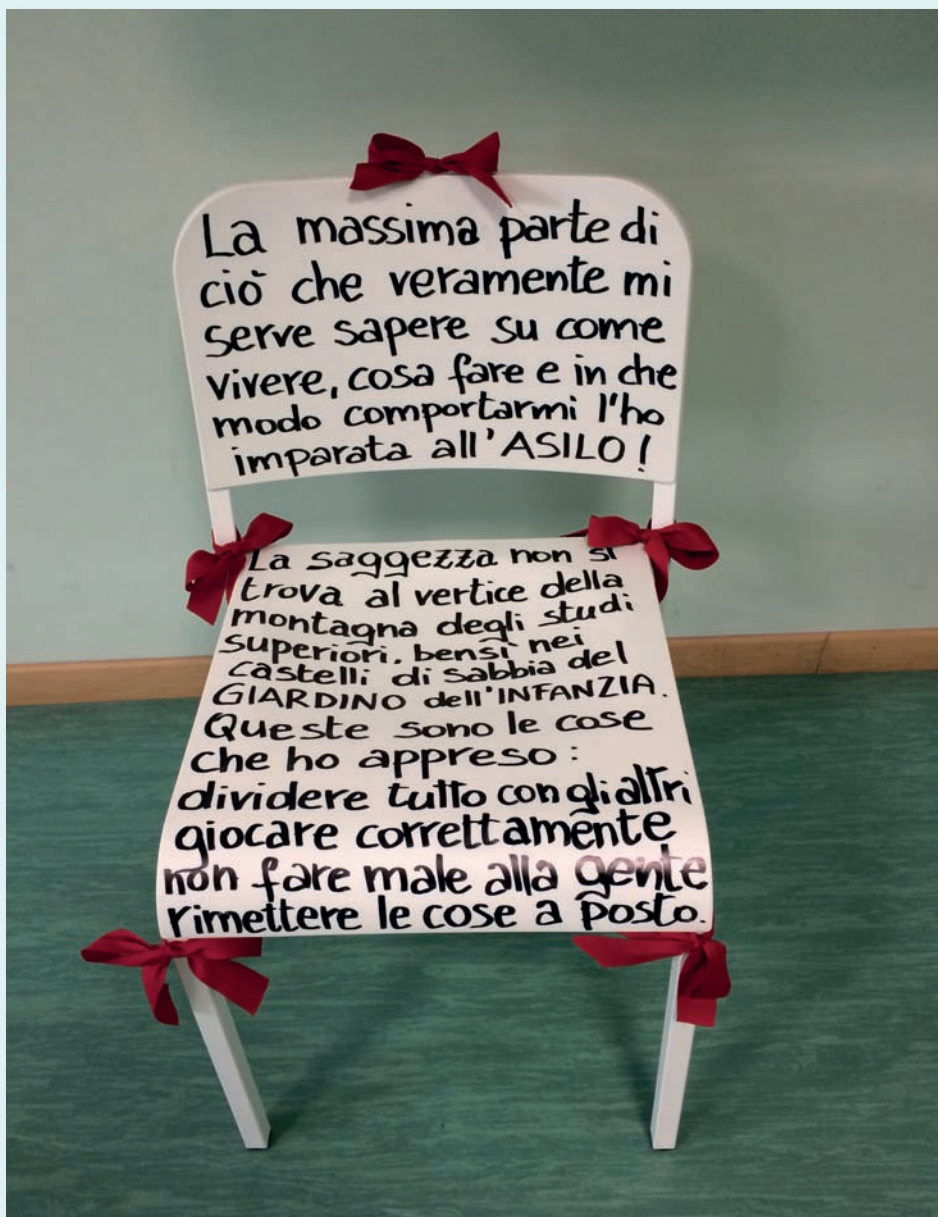 La massima parte di
ciò che veramente mi
serve sapere su come
vivere, cosa fare e in che
modo comportarmi l'ho
imparata all'ASILO!
La saggezza non si
trova al vertice della
montagna degli studi
superiori, bensì nei
castelli di sabbia del
GIARDINO dell'INFANZIA.
Queste sono le cose
che ho appreso:
dividere tutto con gli altri
giocare correttamente
non fare male alla gente
rimettere le cose a posto.